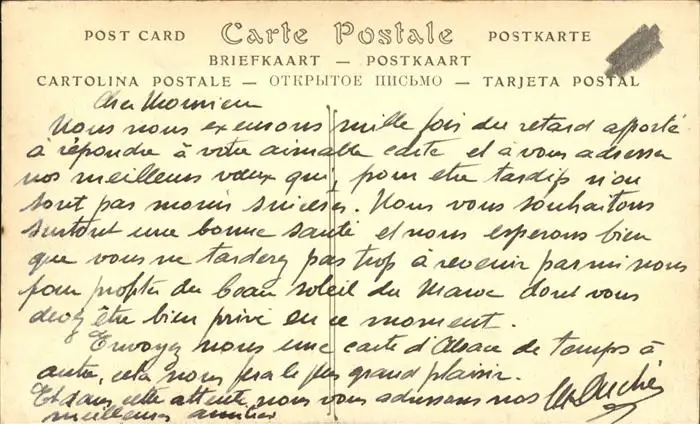 POST CARD Carte Postale POSTKARTE
BRIEFKAART — POSTKAART
CARTOLINA POSTALE — ОТКРЫТОЕ ПИСЬМО — TARJETA POSTAL
Cher Monsieur
Nous nous excusons mille fois du retard apporté
à répondre à votre aimable carte et à vous adresser
nos meilleurs vœux qui, pour etre tardifs n'en
sont pas moins sincères. Nous vous souhaitons
surtout une bonne santé et nous esperons bien
que vous ne tarderez pas trop à revenir parmi nous
pour profiter du beau soleil du Maroc dont vous
devez être bien privé en ce moment.
Envoyez nous une carte d'Alsace de temps à
autre, cela nous fera le plus grand plaisir.
Et dans cette attente nous vous adressons nos
meilleures amitiés